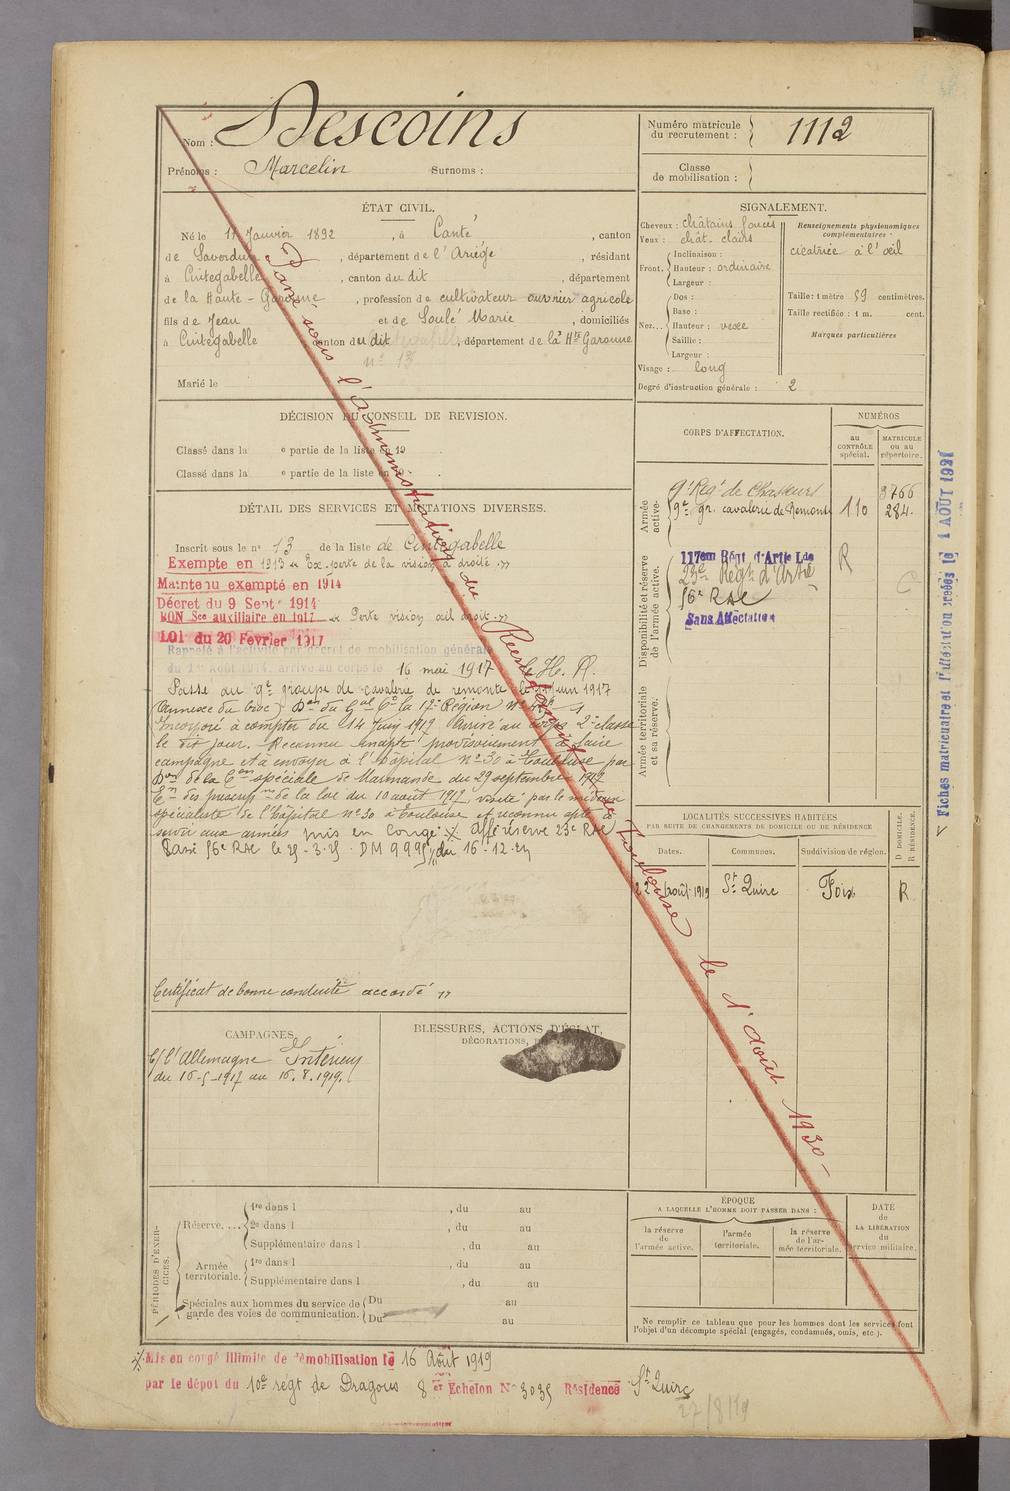 Nom : Descoins
Prénoms : Marcelin Surnoms :
Numéro matricule du recrutement : 1112
Classe de mobilisation :
ÉTAT CIVIL.
Né le 11 Janvier 1892, à Canté, canton
de Saverdun, département de l'Ariège, résidant
à Cintegabelle, canton du dit, département
de la Haute-Garonne, profession de cultivateur ouvrier agricole
fils de Jean et de Soulé Marie, domiciliés
à Cintegabelle canton du dit, département de la Hte Garonne
n° 13
Marié le
SIGNALEMENT.
Cheveux : châtains foncés
Yeux : chât. clairs
Front. Inclinaison :
Hauteur : ordinaire
Largeur :
Nez... Dos :
Base :
Hauteur : vexe
Saillie :
Largeur :
Visage : long
Renseignements physionomiques complémentaires :
cicatrice à l'œil
Taille : 1 mètre 59 centimètres.
Taille rectifiée : 1 m. cent.
Marques particulières
Degré d'instruction générale : 2
DÉCISION DU CONSEIL DE REVISION.
Classé dans la e partie de la liste en 19 .
Classé dans la e partie de la liste en
DÉTAIL DES SERVICES ET MUTATIONS DIVERSES.
Inscrit sous le n° 13 de la liste de Cintegabelle
Exempté en 1913 « Ex. perte de la vision à droite »
Maintenu exempté en 1914
Décret du 9 Sept 1914
BON Sce auxiliaire en 1917 « Perte vision œil droit »
LOI du 20 Février 1917
Rappelé à l'activité par décret de mobilisation générale
du 1er Août 1914, arrivé au corps le 16 mai 1917
Passé au 9e groupe de cavalerie de remonte le 14 Juin 1917
Incorporé à compter du 14 Juin 1917 Arrivé au corps 2e classe
le dit jour. Reconnu inapte provisoirement à faire
campagne et à envoyer à l'hôpital n° 30 à Toulouse par
Don de la Con spéciale de Marmande du 29 septembre 1917
En des prescripns de la loi du 10 août 1917, visité par le médecin
spécialiste de l'hôpital n° 30 à Toulouse et reconnu apte à
servir aux armées mis en congé X Affé réserve 23e RAC
Passé 56e RAC le
Certificat de bonne conduite accordé »
CORPS D'AFFECTATION.
NUMÉROS
au CONTRÔLE spécial.
MATRICULE ou au répertoire.
Armée active.
9e Régt de Chasseurs 3766
9e gr. cavalerie de Remonte 110 284.
Disponibilité et réserve de l'armée active.
117em Régt d'Artie Lde R
23e Régt d'Artie
56e RAC
Sans Affectation
Armée territoriale et sa réserve.
LOCALITÉS SUCCESSIVES HABITÉES
PAR SUITE DE CHANGEMENTS DE DOMICILE OU DE RÉSIDENCE
Dates. Communes. Subdivision de région. D DOMICILE. R RÉSIDENCE.
22 août 1919 St Quirc Foix R
CAMPAGNES
C/ l'Allemagne Intérieur
du 16-5-1917 au 16.8.1919.
BLESSURES, ACTIONS D'ÉCLAT,
DÉCORATIONS,
PÉRIODES D'EXERCICES.
Réserve.... 1re dans l , du au
2e dans l , du au
Supplémentaire dans l , du au
Armée territoriale. 1re dans l , du au
Supplémentaire dans l , du au
Spéciales aux hommes du service de garde des voies de communication. Du au
Du au
ÉPOQUE
A LAQUELLE L'HOMME DOIT PASSER DANS :
la réserve de l'armée active.
l'armée territoriale.
la réserve de l'armée territoriale.
DATE de LA LIBÉRATION du service militaire.
Ne remplir ce tableau que pour les hommes dont les services font
l'objet d'un décompte spécial (engagés, condamnés, omis, etc.).
Mis en congé illimité de démobilisation le 16 Août 1919
par le dépôt du 10e régt de Dragons 8 er Echelon N° 3035 Résidence St Quirc
27/8/19
Passé sous l'administration du Recrutement de Toulouse le 1er Août 1930